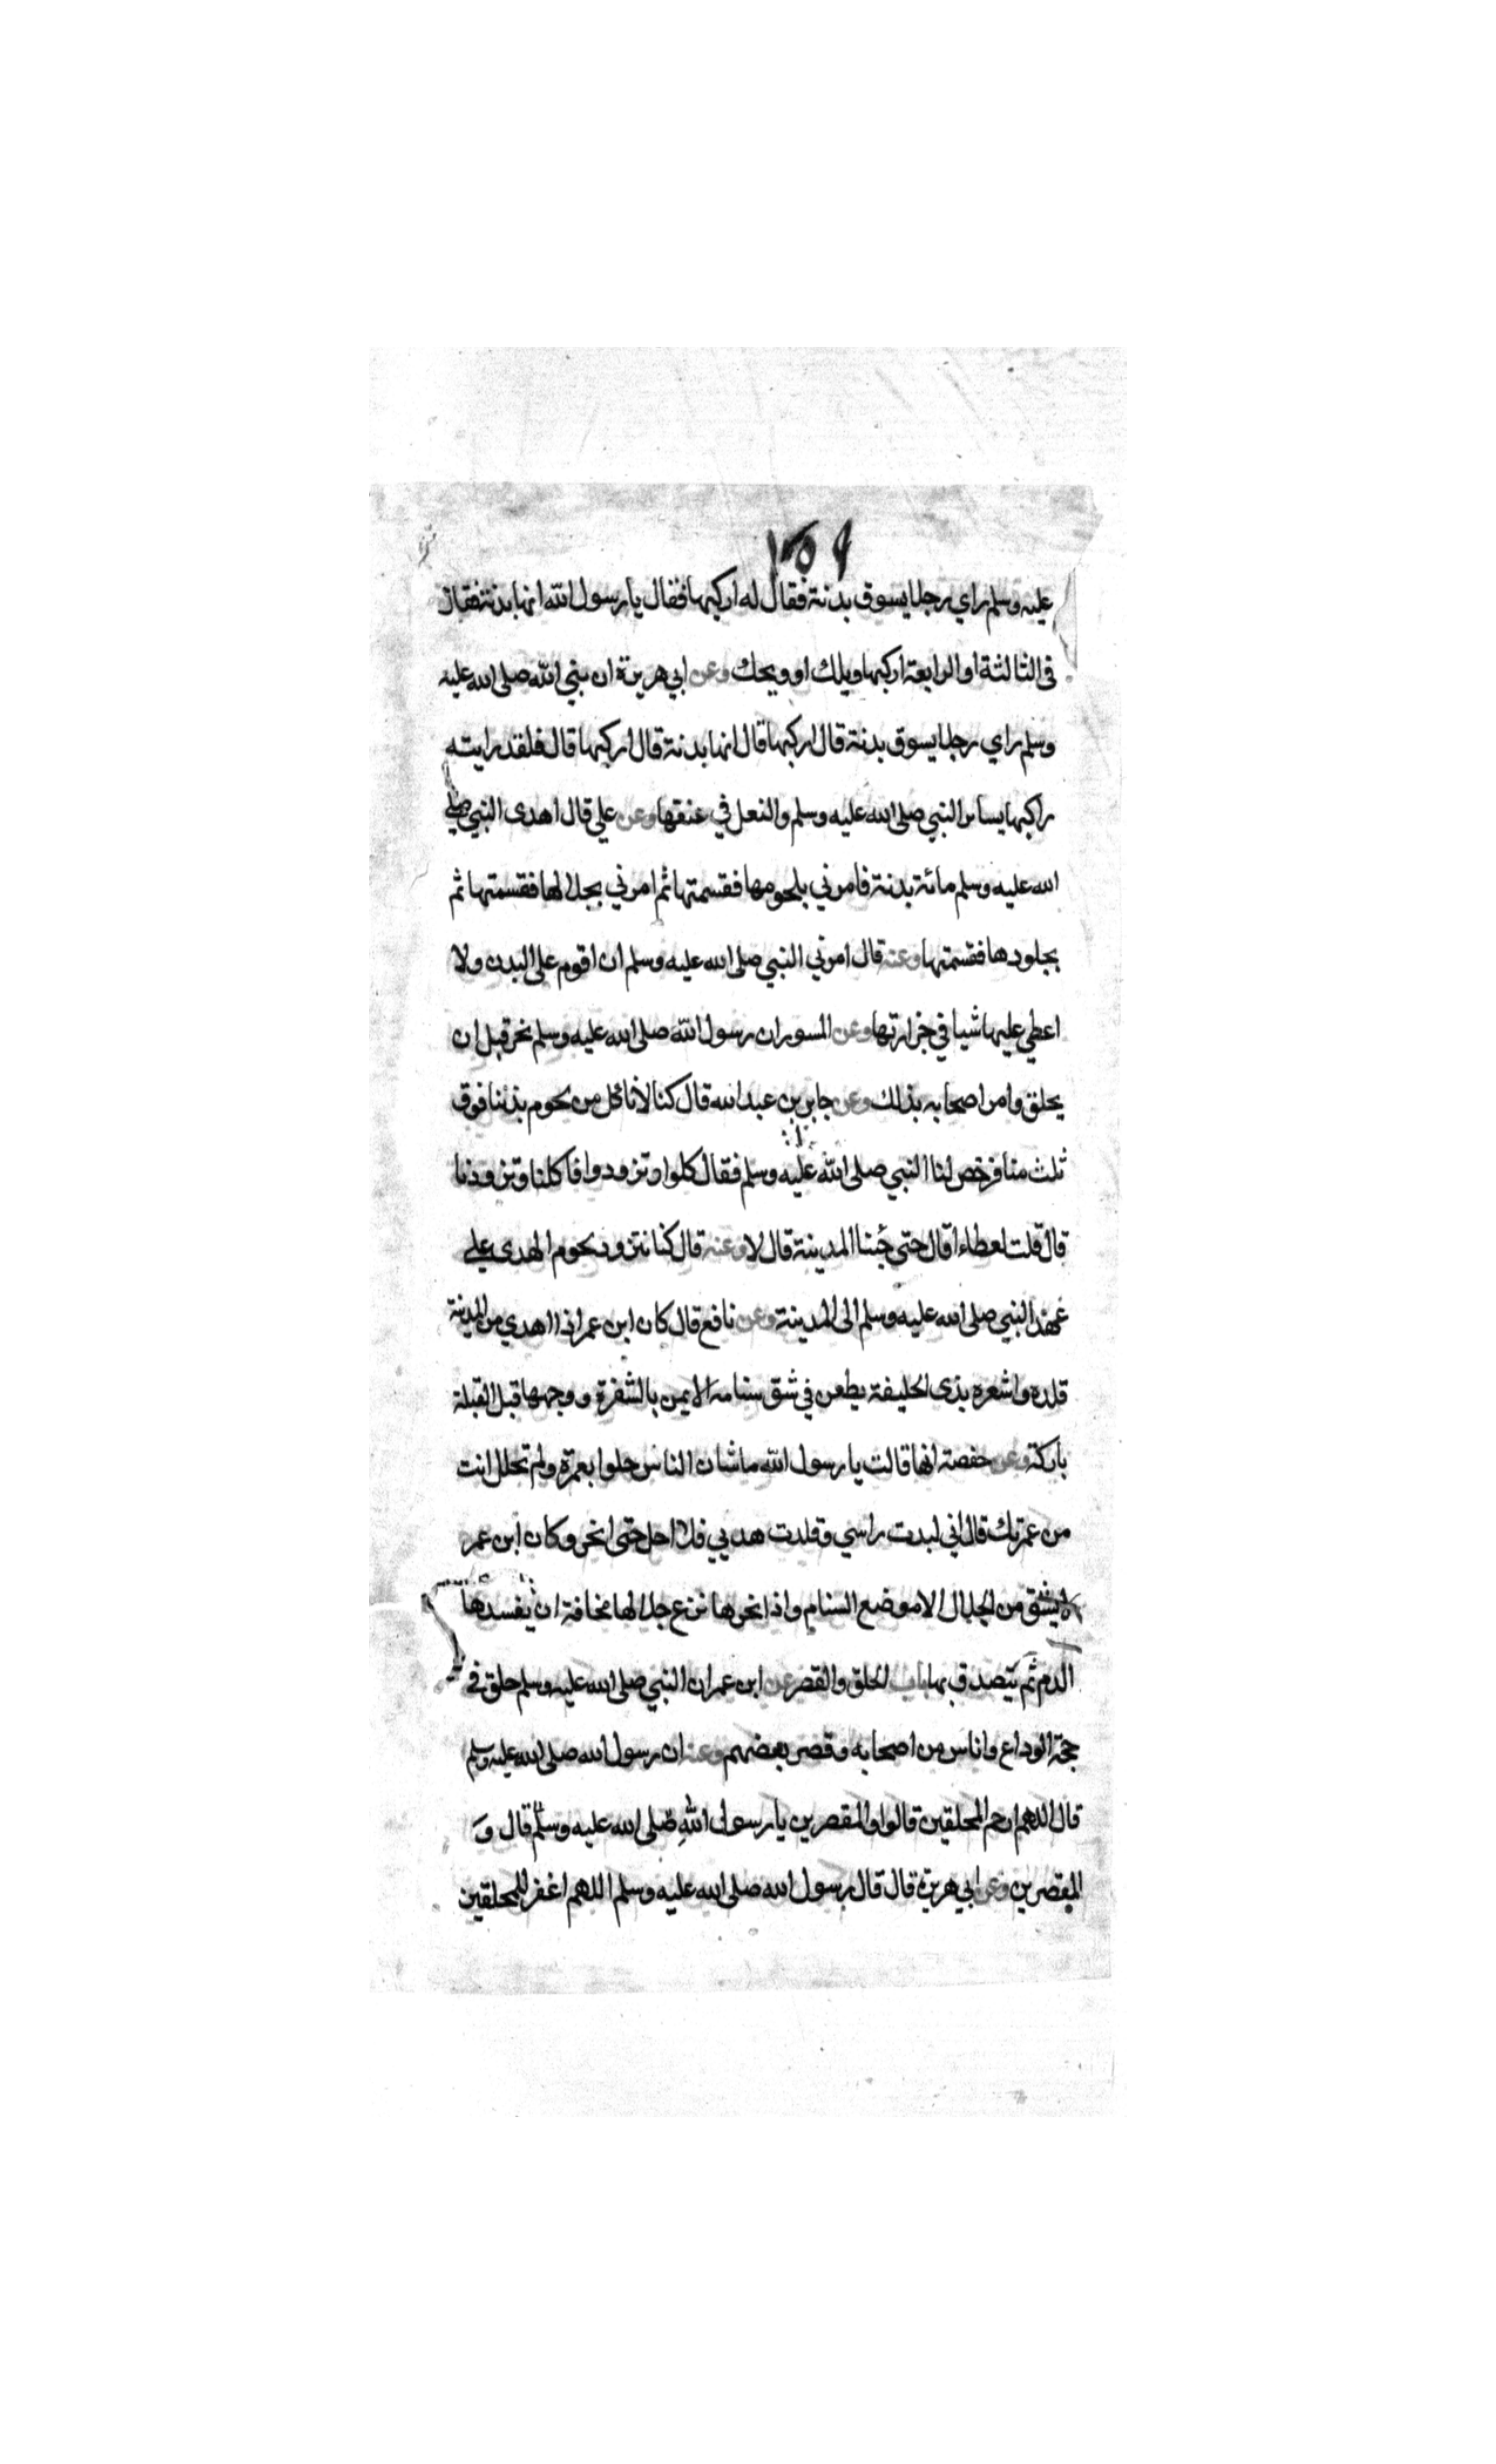 ١٥٩
عليه وسلم راي رجلا يسوق بدنة فقال له اركبها فقال يا رسول الله انها بدنة فقال
في الثالثة او الرابعة اركبها ويلك او ويحك وعن ابي هريرة ان نبي الله صلى الله عليه
وسلم راي رجلا يسوق بدنة قال اركبها قال انها بدنة قال اركبها قال فلقد رايته
راكبها يساير النبي صلى الله عليه وسلم والنعل في عنقها وعن علي قال اهدى النبي صلى
الله عليه وسلم مائة بدنة فامرني بلحومها فقسمتها ثم امرني بجلالها فقسمتها ثم
بجلودها فقسمتها وعنه قال امرني النبي صلى الله عليه وسلم ان اقوم على البدن ولا
اعطي عليها شيا في جزارتها وعن المسور ان رسول الله صلى الله عليه وسلم نحر قبل ان
يحلق وامر اصحابه بذلك وعن جابر بن عبد الله قال كنا لا ناكل من لحوم بدننا فوق
ثلث منا فرخص لنا النبي صلى الله عليه وسلم فقال كلوا وتزودوا فاكلنا وتزودنا
قال قلت لعطاء اقال حتى جئنا المدينة قال لا وعنه قال كنا نتزود لحوم الهدى على
عهد النبي صلى الله عليه وسلم الى المدينة وعن نافع قال كان ابن عمر اذا اهدي من المدينة
قلده واشعره بذى الحليفة يطعن في شق سنامه الايمن بالشفرة ووجهها قبل القبلة
باركة وعن حفصة انها قالت يا رسول الله ما شان الناس حلوا بعمرة ولم تحلل انت
من عمرتك قال اني لبدت راسي وقلدت هديي فلا احل حتى انحر وكان ابن عمر
لا يشق من الجلال الا موضع السنام واذا نحرها نزع جلالها مخافة ان يفسدها
الدم ثم يتصدق بها باب الحلق والقصر عن ابن عمر ان النبي صلى الله عليه وسلم حلق في
حجة الوداع واناس من اصحابه وقصر بعضهم وعنه ان رسول الله صلى الله عليه وسلم
قال اللهم ارحم المحلقين قالوا والمقصرين يا رسول الله صلى الله عليه وسلم قال و
المقصرين وعن ابي هريرة قال قال رسول الله صلى الله عليه وسلم اللهم اغفر للمحلقين